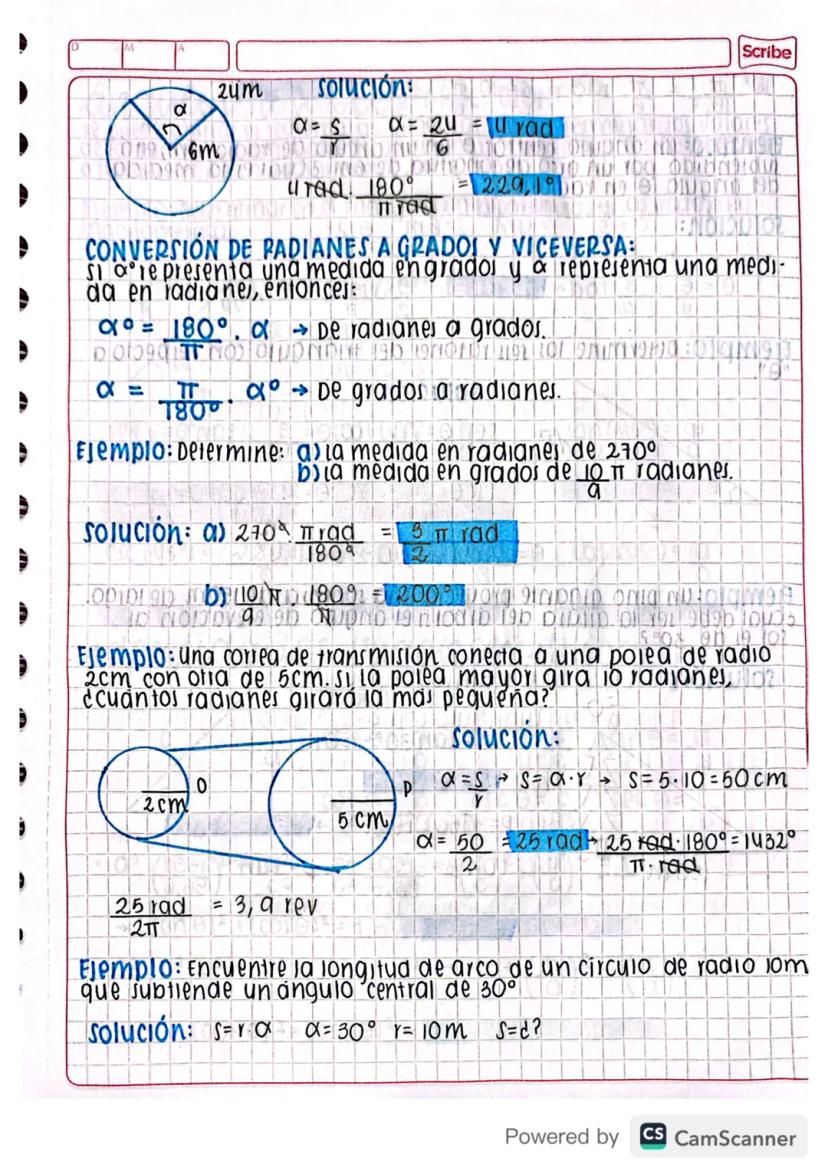 D M A
Scribe
24m solución:
α
6m
α = s/r α = 24/6 = 4 rad
4 rad. 180°/π rad = 229,1°
CONVERSIÓN DE RADIANES A GRADOS Y VICEVERSA:
si α° representa una medida en grados y α representa una medi-
da en radianes, entonces:
α° = 180°/π . α → De radianes a grados.
α = π/180° . α° → De grados a radianes.
Ejemplo: Determine: a) la medida en radianes de 270°
b) la medida en grados de 10/9 π radianes.
solución: a) 270° π rad/180° = 3/2 π rad
b) 10/9 π . 180°/π = 200°
Ejemplo: una correa de transmisión conecta a una polea de radio
2cm con otra de 5cm. si la polea mayor gira 10 radianes,
¿cuántos radianes girará la más pequeña?
solución:
2cm O
5cm P
α = s/r → s = α·r → s = 5·10 = 50 cm
α = 50/2 = 25 rad → 25 rad·180°/π·rad = 1432°
25 rad/2π = 3,9 rev
Ejemplo: Encuentre la longitud de arco de un círculo de radio 10m
que subtiende un ángulo central de 30°
solución: s=r α α=30° r=10m s=¿?
Powered by CS CamScanner